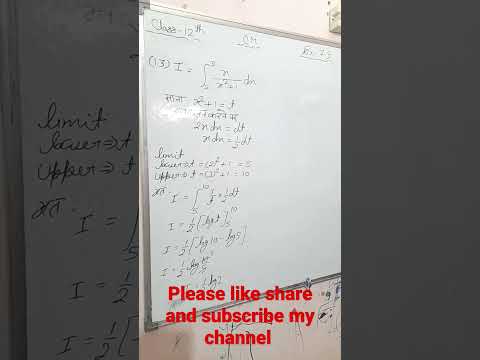 Class-12th
(13) I = ∫₂³ x/(x²+1) dx
माना x²+1 = t
करने पर
2x dx = dt
x dx = ½ dt
limit
lower ⇒ t = (2)²+1 = 5
upper ⇒ t = (3)²+1 = 10
अतः
I = ∫₅¹⁰ 1/t · ½ dt
I = ½ [log t]₅¹⁰
I = ½ [log 10 - log 5]
I = ½ log 10/5
½ log 2
limit
lower ⇒
upper ⇒
अतः
I = ∫
I = ½
I = ½ [
Please like share
and subscribe my
channel